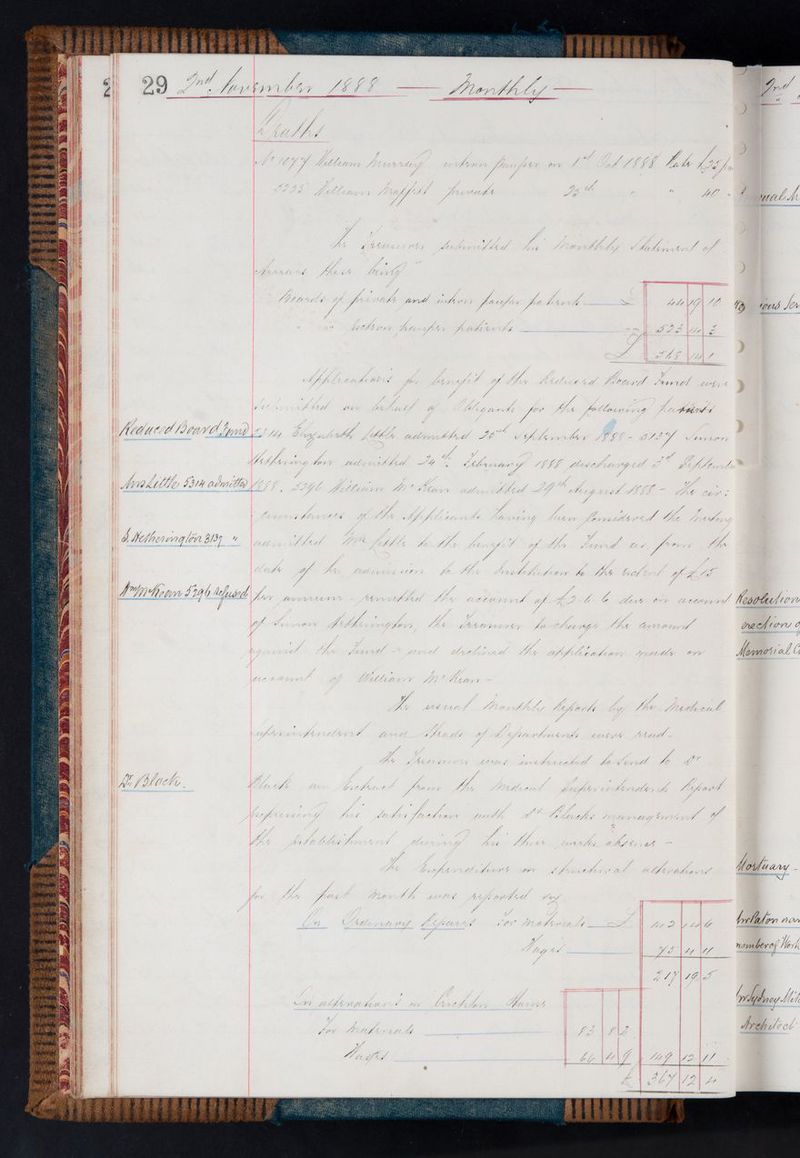 29 2nd November 1888 — Monthly —
Deaths
No 1077 William Murray intron pauper on 1st Oct 1888 Rate £25 p
5235 William Moffat private 25th " " 40 "
The Treasurer submitted his Monthly Statement of
Arrears these being
Boards of private and intron pauper patients £ 44 19 10
" " Extron pauper patients 523 14 3
£ 568 14 1
Applications for benefit of the Reduced Board Fund were
submitted on behalf of Obligants for the following patients
Reduced Board Fund
5314 Elizabeth Little admitted 25th September 1888 - 3137 Simon
Hetherington admitted 24th February 1888 discharged 3rd September
Mrs Little 5314 admitted
1888. 5296 William McKean admitted 29th August 1888 - The cir:
cumstances of the Applicants having been considered the Meeting
S. Hetherington 3137 "
admitted Mrs Little to the benefit of the Fund as from the
date of her admission to the Institution to the extent of £15
Wm McKean 5296 refused
per annum - remitted the account of £2-6-6 due on account
of Simon Hetherington, the Treasurer to charge the amount
against the Fund - and declined the application made on
account of William McKean -
The usual Monthly Reports by the Medical
Superintendent and Heads of Departments were read -
The Treasurer was instructed to send to Dr
Dr Black.
Black an Extract from the Medical Superintendents Report
expressing his satisfaction with Dr Blacks management of
the establishment during his three weeks absence -
The Expenditure on structural alterations
for the past month was reported viz
On Ordinary Repairs For Materials £ 142 14 6
Wages 75 4 11
217 19 5
On alterations in Crichton House
For Materials 83 8 2
Wages 66 4 9 149 12 11
£ 367 12 4
2nd
Resolution
erection of
Memorial
Mortuary -
Mr Paton
number of
Mr Sydney
Architect